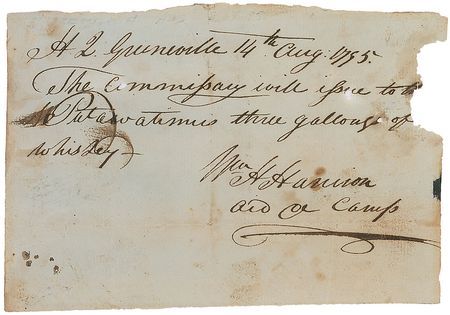 H Q. Greeneville 14th Aug. 1795.
The Commissary will issue to
Putawatimies three gallons of
whiskey
Wm H Harrison
Aid de Camp